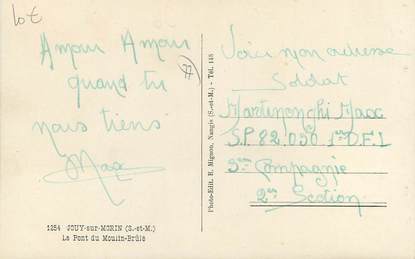 lot
Amour Amour
quand tu
nous tiens
Max
77
1254 JOUY-sur-MORIN (S.-et-M.)
Le Pont du Moulin-Brûlé
Photo-Edit. R. Mignon, Nangis (S.-et-M.) - Tél. 148
Voici mon adresse
Soldat
Martinonghi Max
S.P 82.050 1er D.F.L
3me Compagnie
2me Section